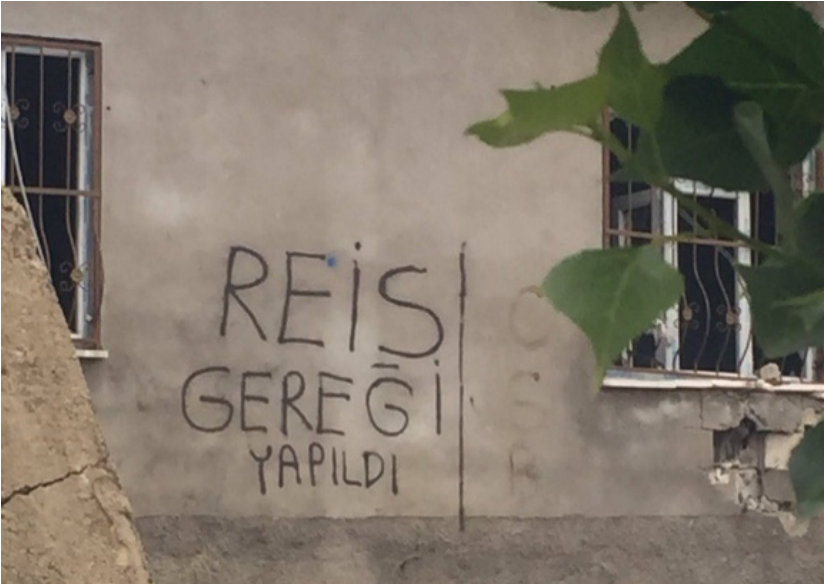 REİS
GEREĞİ
YAPILDI